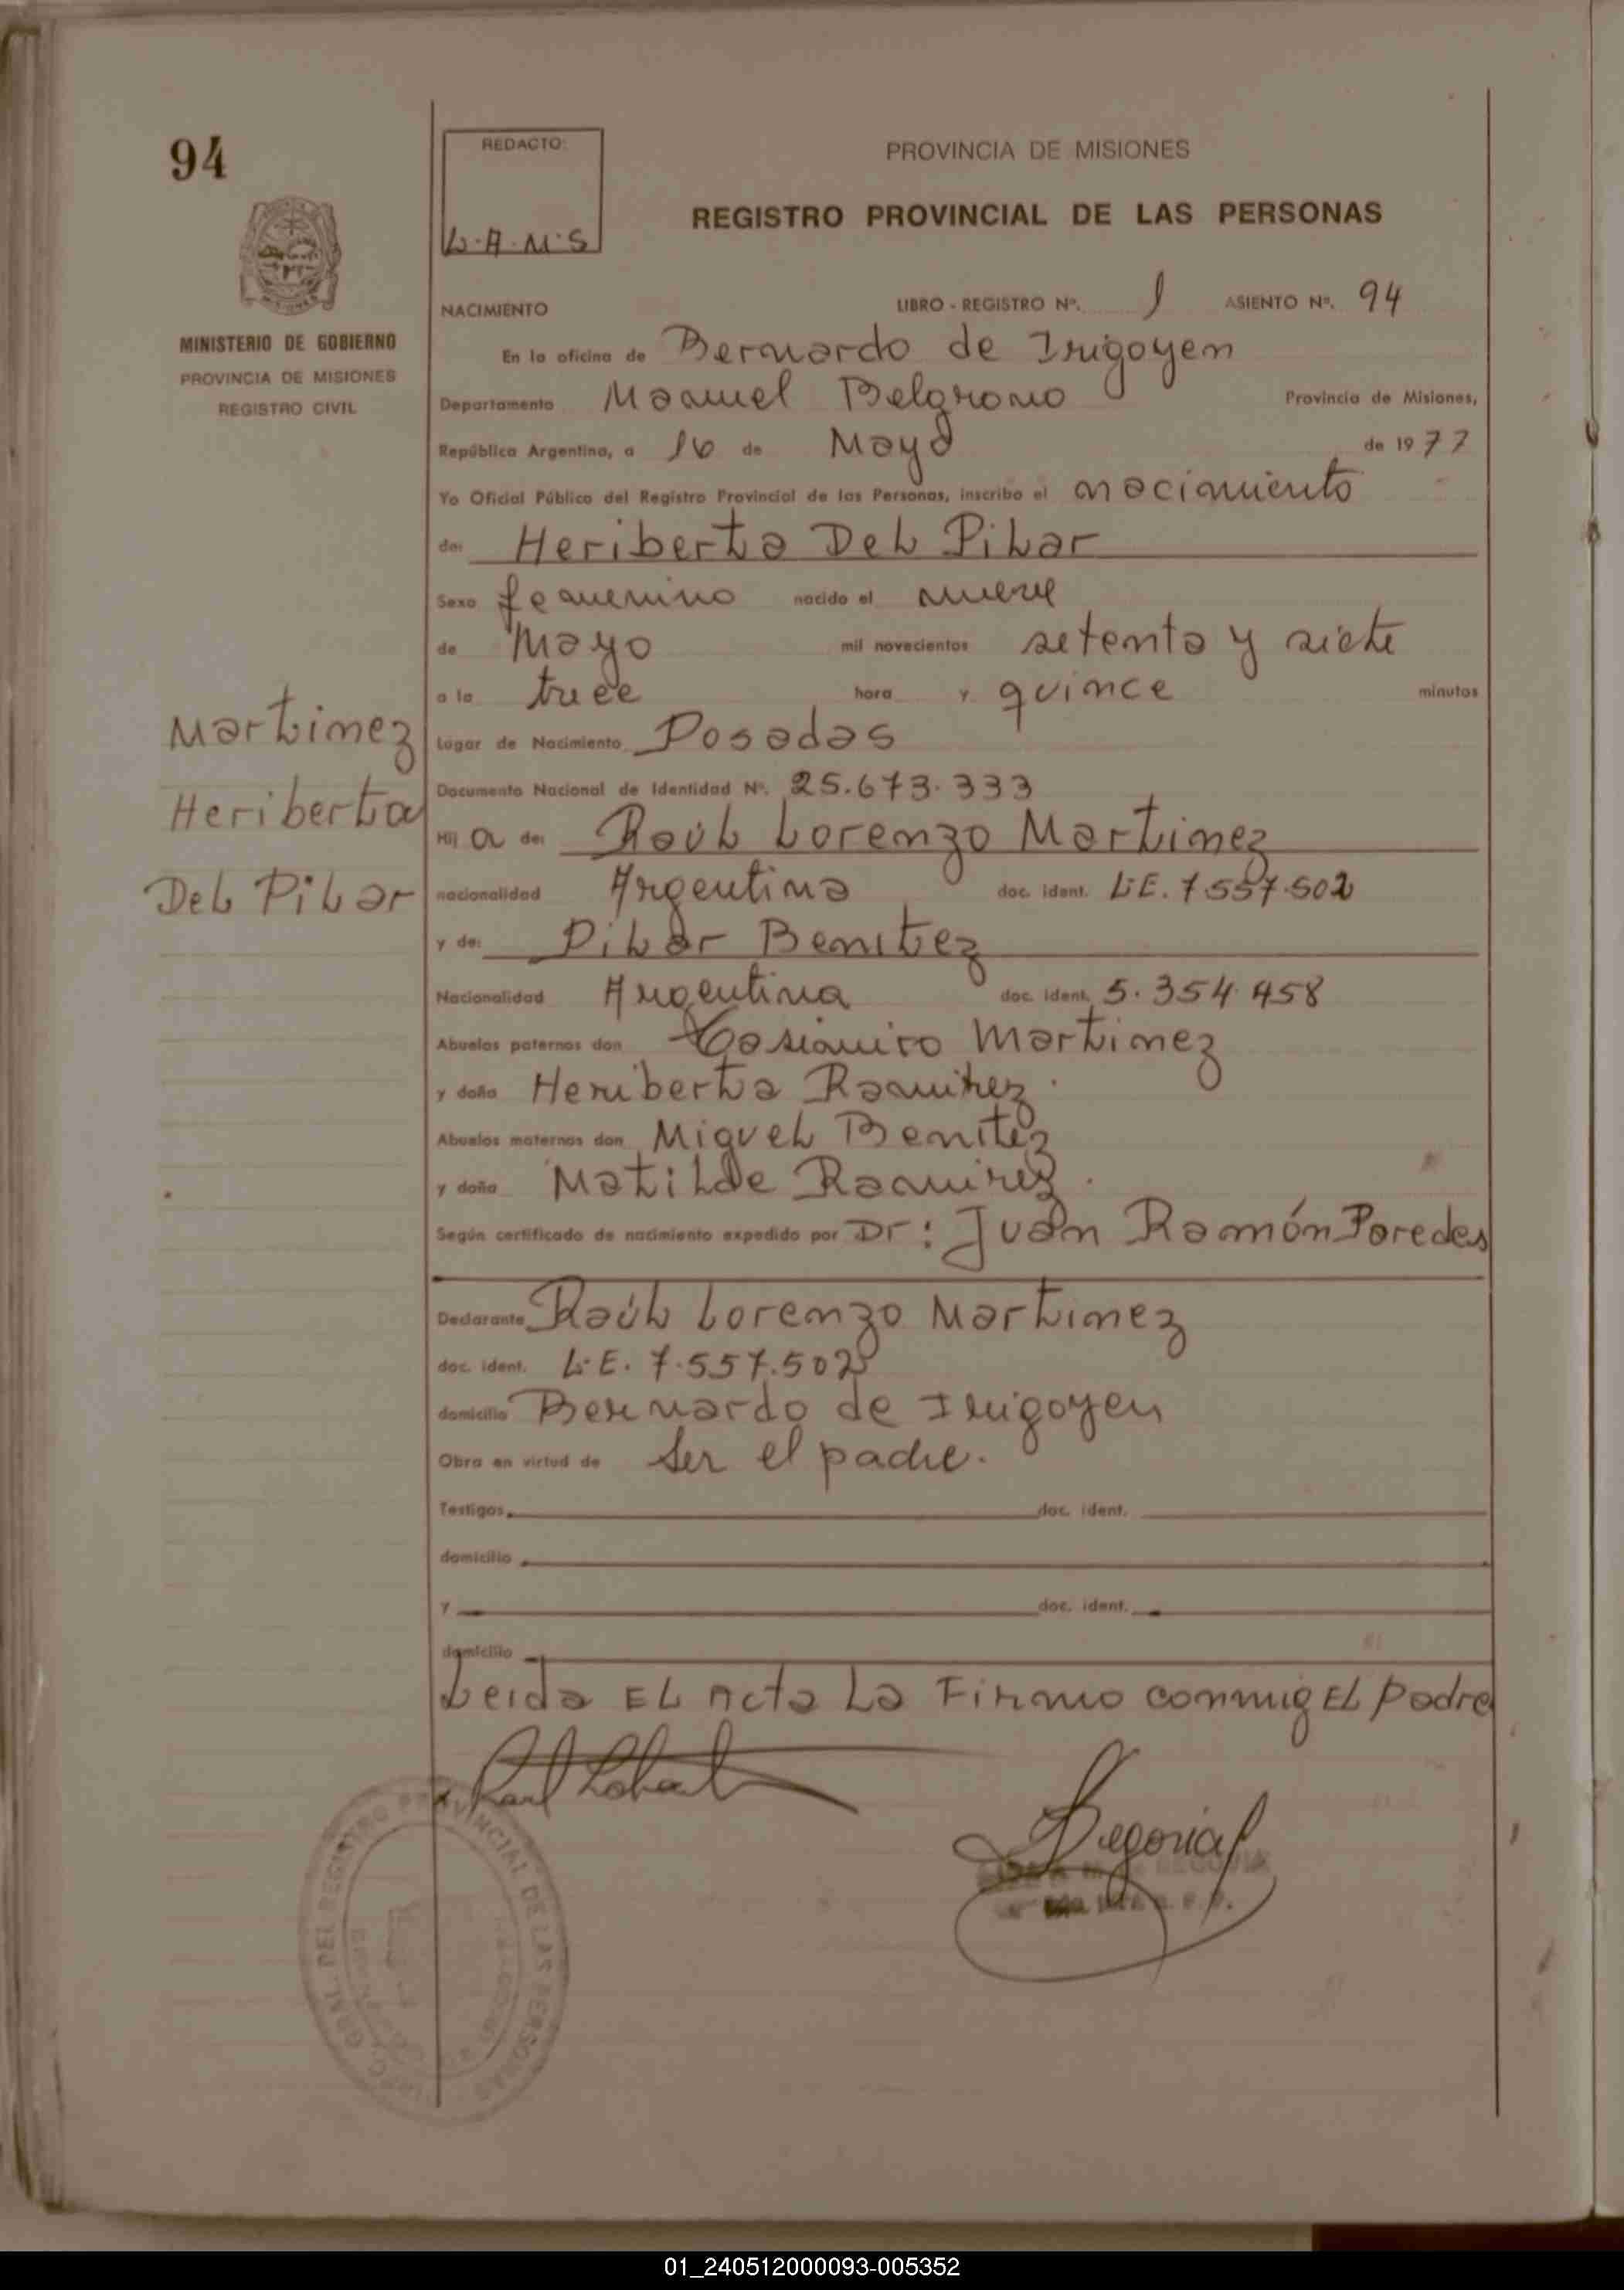 94
REDACTO:
L.A.M.S
PROVINCIA DE MISIONES
REGISTRO PROVINCIAL DE LAS PERSONAS
MINISTERIO DE GOBIERNO
PROVINCIA DE MISIONES
REGISTRO CIVIL
NACIMIENTO LIBRO - REGISTRO Nº. 1 ASIENTO Nº. 94
En la oficina de Bernardo de Irigoyen
Departamento Manuel Belgrano Provincia de Misiones,
República Argentina, a 16 de Mayo de 1977
Yo Oficial Público del Registro Provincial de las Personas, inscribo el nacimiento
de: Heriberta Del Pilar
Sexo femenino nacido el nueve
de Mayo mil novecientos setenta y siete
a la trece hora y quince minutos
Lugar de Nacimiento Posadas
Documento Nacional de Identidad Nº. 25.673.333
Hij a de: Raúl Lorenzo Martinez
nacionalidad Argentina doc. ident. L.E. 7.557.502
y de: Pilar Benitez
Nacionalidad Argentina doc. ident. 5.354.458
Abuelos paternos don Casimiro Martinez
y doña Heriberta Ramirez.
Abuelos maternos don Miguel Benitez
y doña Matilde Ramirez.
Según certificado de nacimiento expedido por Dr: Juan Ramón Paredes
Martinez
Heriberta
Del Pilar
Declarante Raúl Lorenzo Martinez
doc. ident. L.E. 7.557.502
domicilio Bernardo de Irigoyen
Obra en virtud de Ser el padre.
Testigos doc. ident.
domicilio
y doc. ident.
domicilio
Leida EL Acta La Firma conmig EL padre
Segovia
SEGOVIA
GRAL. DEL REGISTRO PROVINCIAL DE LAS PERSONAS
01_240512000093-005352